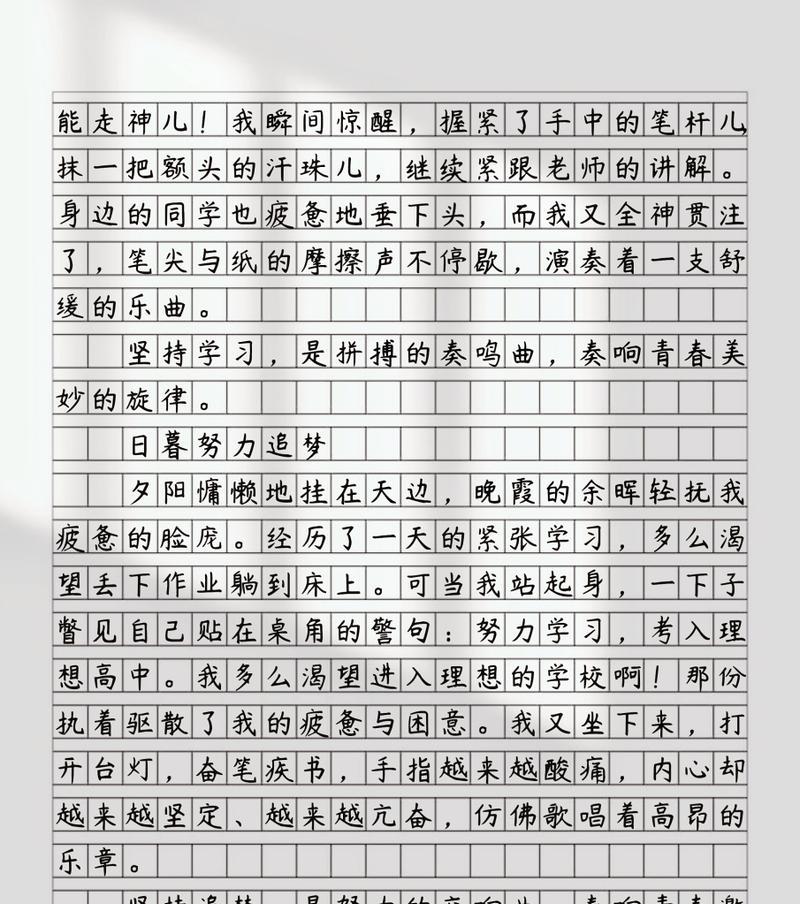 能走神儿！我瞬间惊醒，握紧了手中的笔杆儿，
抹一把额头的汗珠儿，继续紧跟老师的讲解。
身边的同学也疲惫地垂下头，而我又全神贯注
了，笔尖与纸的摩擦声不停歇，演奏着一支舒
缓的乐曲。
坚持学习，是拼搏的奏鸣曲，奏响青春美
妙的旋律。
日暮努力追梦
夕阳慵懒地挂在天边，晚霞的余晖轻抚我
疲惫的脸庞。经历了一天的紧张学习，多么渴
望丢下作业躺到床上。可当我站起身，一下子
瞥见自己贴在桌角的警句：努力学习，考入理
想高中。我多么渴望进入理想的学校啊！那份
执着驱散了我的疲惫与困意。我又坐下来，打
开台灯，奋笔疾书，手指越来越酸痛，内心却
越来越坚定、越来越亢奋，仿佛歌唱着高昂的
乐章。